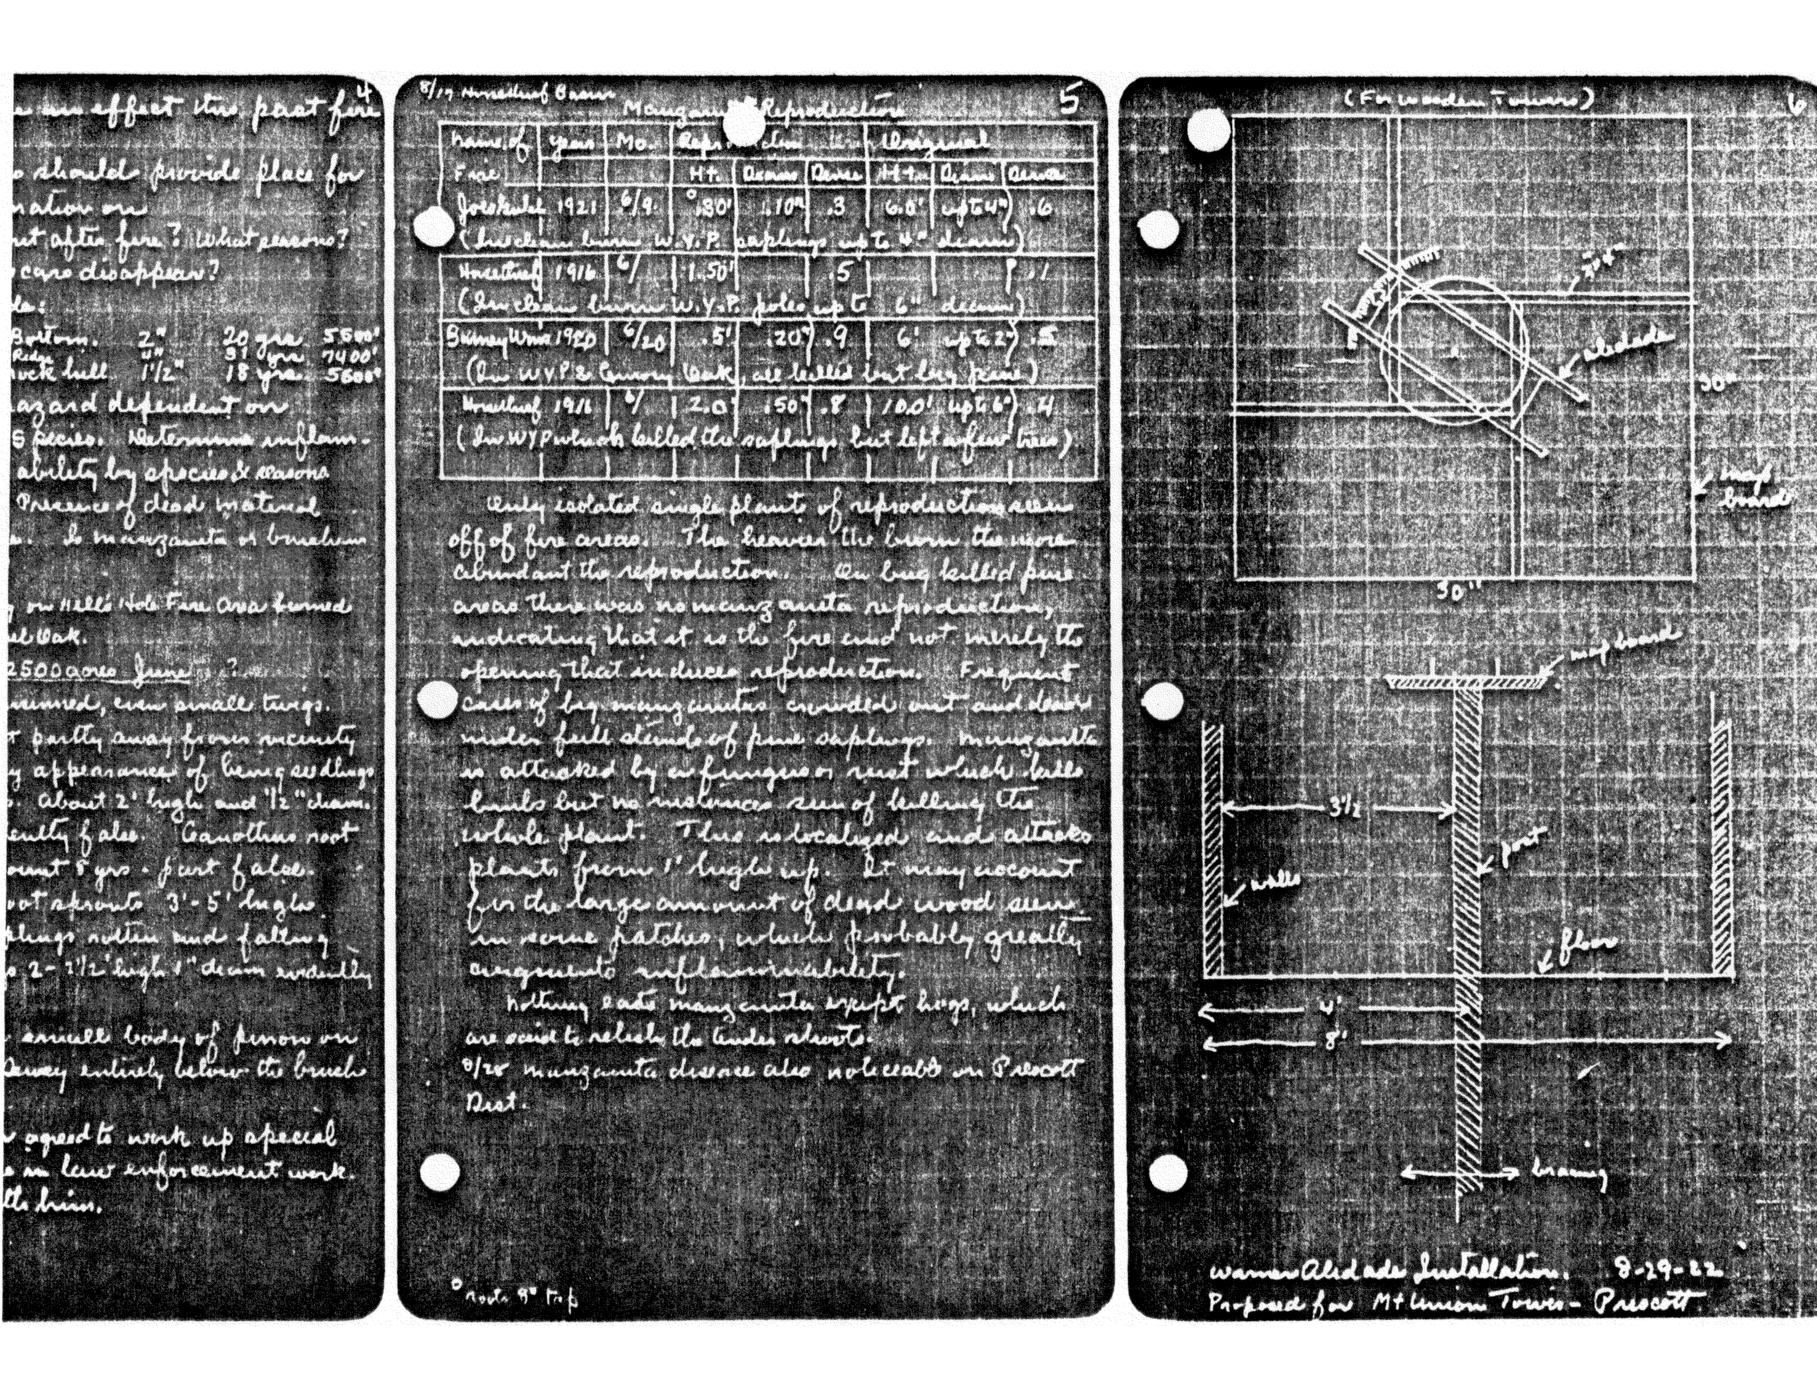 4
effect this past fire
should provide place for
nation on
after fire? What seasons?
disappear?
Bottom. 2" 20 yrs 5500'
Ridge 4" 31 yrs 7400'
ock hill 1 1/2" 18 yrs. 5600'
azard dependent on
Species. Determine inflam-
ability by species & seasons
Presence of dead material
Is manzanita or brush
on Hell's Hole Fire area burned
Oak.
2500 acres June ?
even small twigs.
partly away from vicinity
appearance of being seedlings
About 2' high and 1/2" diam.
ently false. Ceanothus root
ount 8 yrs - part false.
oot sprouts 3'-5' high
plings rotten and falling
2-2 1/2' high 1" diam evidently
small body of pinon on
Dewey entirely below the brush
agreed to work up special
in law enforcement work.
him.
8/19 Horsethief Basin
5
Manzanita Reproduction
Name of Years Mo. Reproduction Original
Fire Ht. Diam Dense Ht. Diam Dense
1921 6/9 °.80' .10" .3 6.0' up to 4" .6
(In clean burn W.Y.P. saplings up to 4" diam)
Horsethief 1916 6/ 1.50' .5 .1
(In clean burn W.Y.P. poles up to 6" diam)
1920 6/20 .5' .20" .9 6' up to 2" .5
(In W.Y.P. & Emory Oak, all killed but big pine)
Horsethief 1916 6/ 2.0 .50" .8 10.0' up to 6" .4
(In WYP which killed the saplings but left a few trees)
Only isolated single plants of reproduction seen
off of fire areas. The heavier the burn the more
abundant the reproduction. On bug killed pine
areas there was no manzanita reproduction,
indicating that it is the fire and not merely the
opening that induces reproduction. Frequent
cases of big manzanitas crowded out and dead
under full stands of pine saplings. Manzanita
is attacked by a fungus or rust which kills
limbs but no instances seen of killing the
whole plant. This is localized and attacks
plants from 1' high up. It may account
for the large amount of dead wood seen
in some patches, which probably greatly
augments inflammability.
Nothing eats manzanita except hogs, which
are said to relish the tender shoots.
8/28 Manzanita disease also noticeable on Prescott
Dist.
° roots 8" top
(For wooden Towers)
6
2"x4"
alidade
30"
map
board
30"
map board
3 1/2
post
walls
floor
4'
8'
bracing
Warner Alidade Installation. 8-29-22
Proposed for Mt Union Tower - Prescott